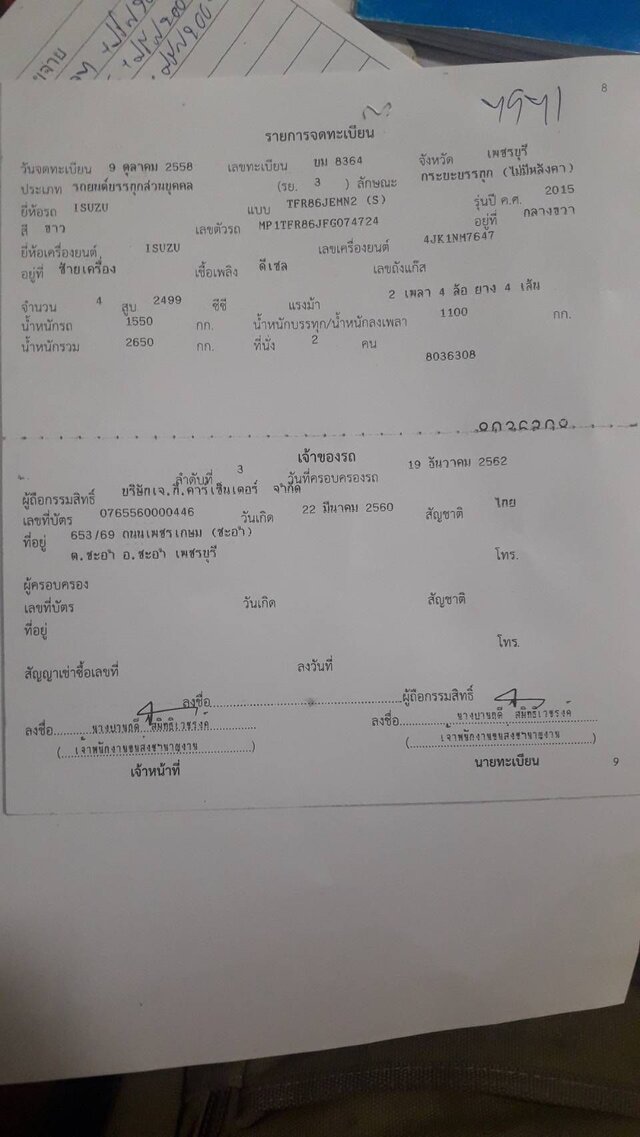 8
รายการจดทะเบียน
วันจดทะเบียน 9 ตุลาคม 2558 เลขทะเบียน ยม 8364 จังหวัด เพชรบุรี
ประเภท รถยนต์บรรทุกส่วนบุคคล (รย. 3 ) ลักษณะ กระยะบรรทุก (ไม่มีหลังคา)
ยี่ห้อรถ ISUZU แบบ TFR86JEMN2 (S) รุ่นปี ค.ศ. 2015
สี ขาว เลขตัวรถ MP1TFR86JFG074724 อยู่ที่ กลางขวา
ยี่ห้อเครื่องยนต์ ISUZU เลขเครื่องยนต์ 4JK1NM7647
อยู่ที่ ซ้ายเครื่อง เชื้อเพลิง ดีเซล เลขถังแก๊ส
จำนวน 4 สูบ 2499 ซีซี แรงม้า 2 เพลา 4 ล้อ ยาง 4 เส้น
น้ำหนักรถ 1550 กก. น้ำหนักบรรทุก/น้ำหนักลงเพลา 1100 กก.
น้ำหนักรวม 2650 กก. ที่นั่ง 2 คน
8036308
เจ้าของรถ
ลำดับที่ 3 วันที่ครอบครองรถ 19 ธันวาคม 2562
ผู้ถือกรรมสิทธิ์ บริษัทเจ.กี.คาร์เซ็นเตอร์ จำกัด
เลขที่บัตร 0765560000446 วันเกิด 22 มีนาคม 2560 สัญชาติ ไทย
ที่อยู่ 653/69 ถนนเพชรเกษม (ชะอำ)
ต.ชะอำ อ.ชะอำ เพชรบุรี โทร.
ผู้ครอบครอง
เลขที่บัตร วันเกิด สัญชาติ
ที่อยู่
โทร.
สัญญาเช่าซื้อเลขที่ ลงวันที่
ลงชื่อ ผู้ถือกรรมสิทธิ์
ลงชื่อ ลงชื่อ
(เจ้าพนักงานขนส่งชำนาญงาน) (เจ้าพนักงานขนส่งชำนาญงาน)
เจ้าหน้าที่ นายทะเบียน
9